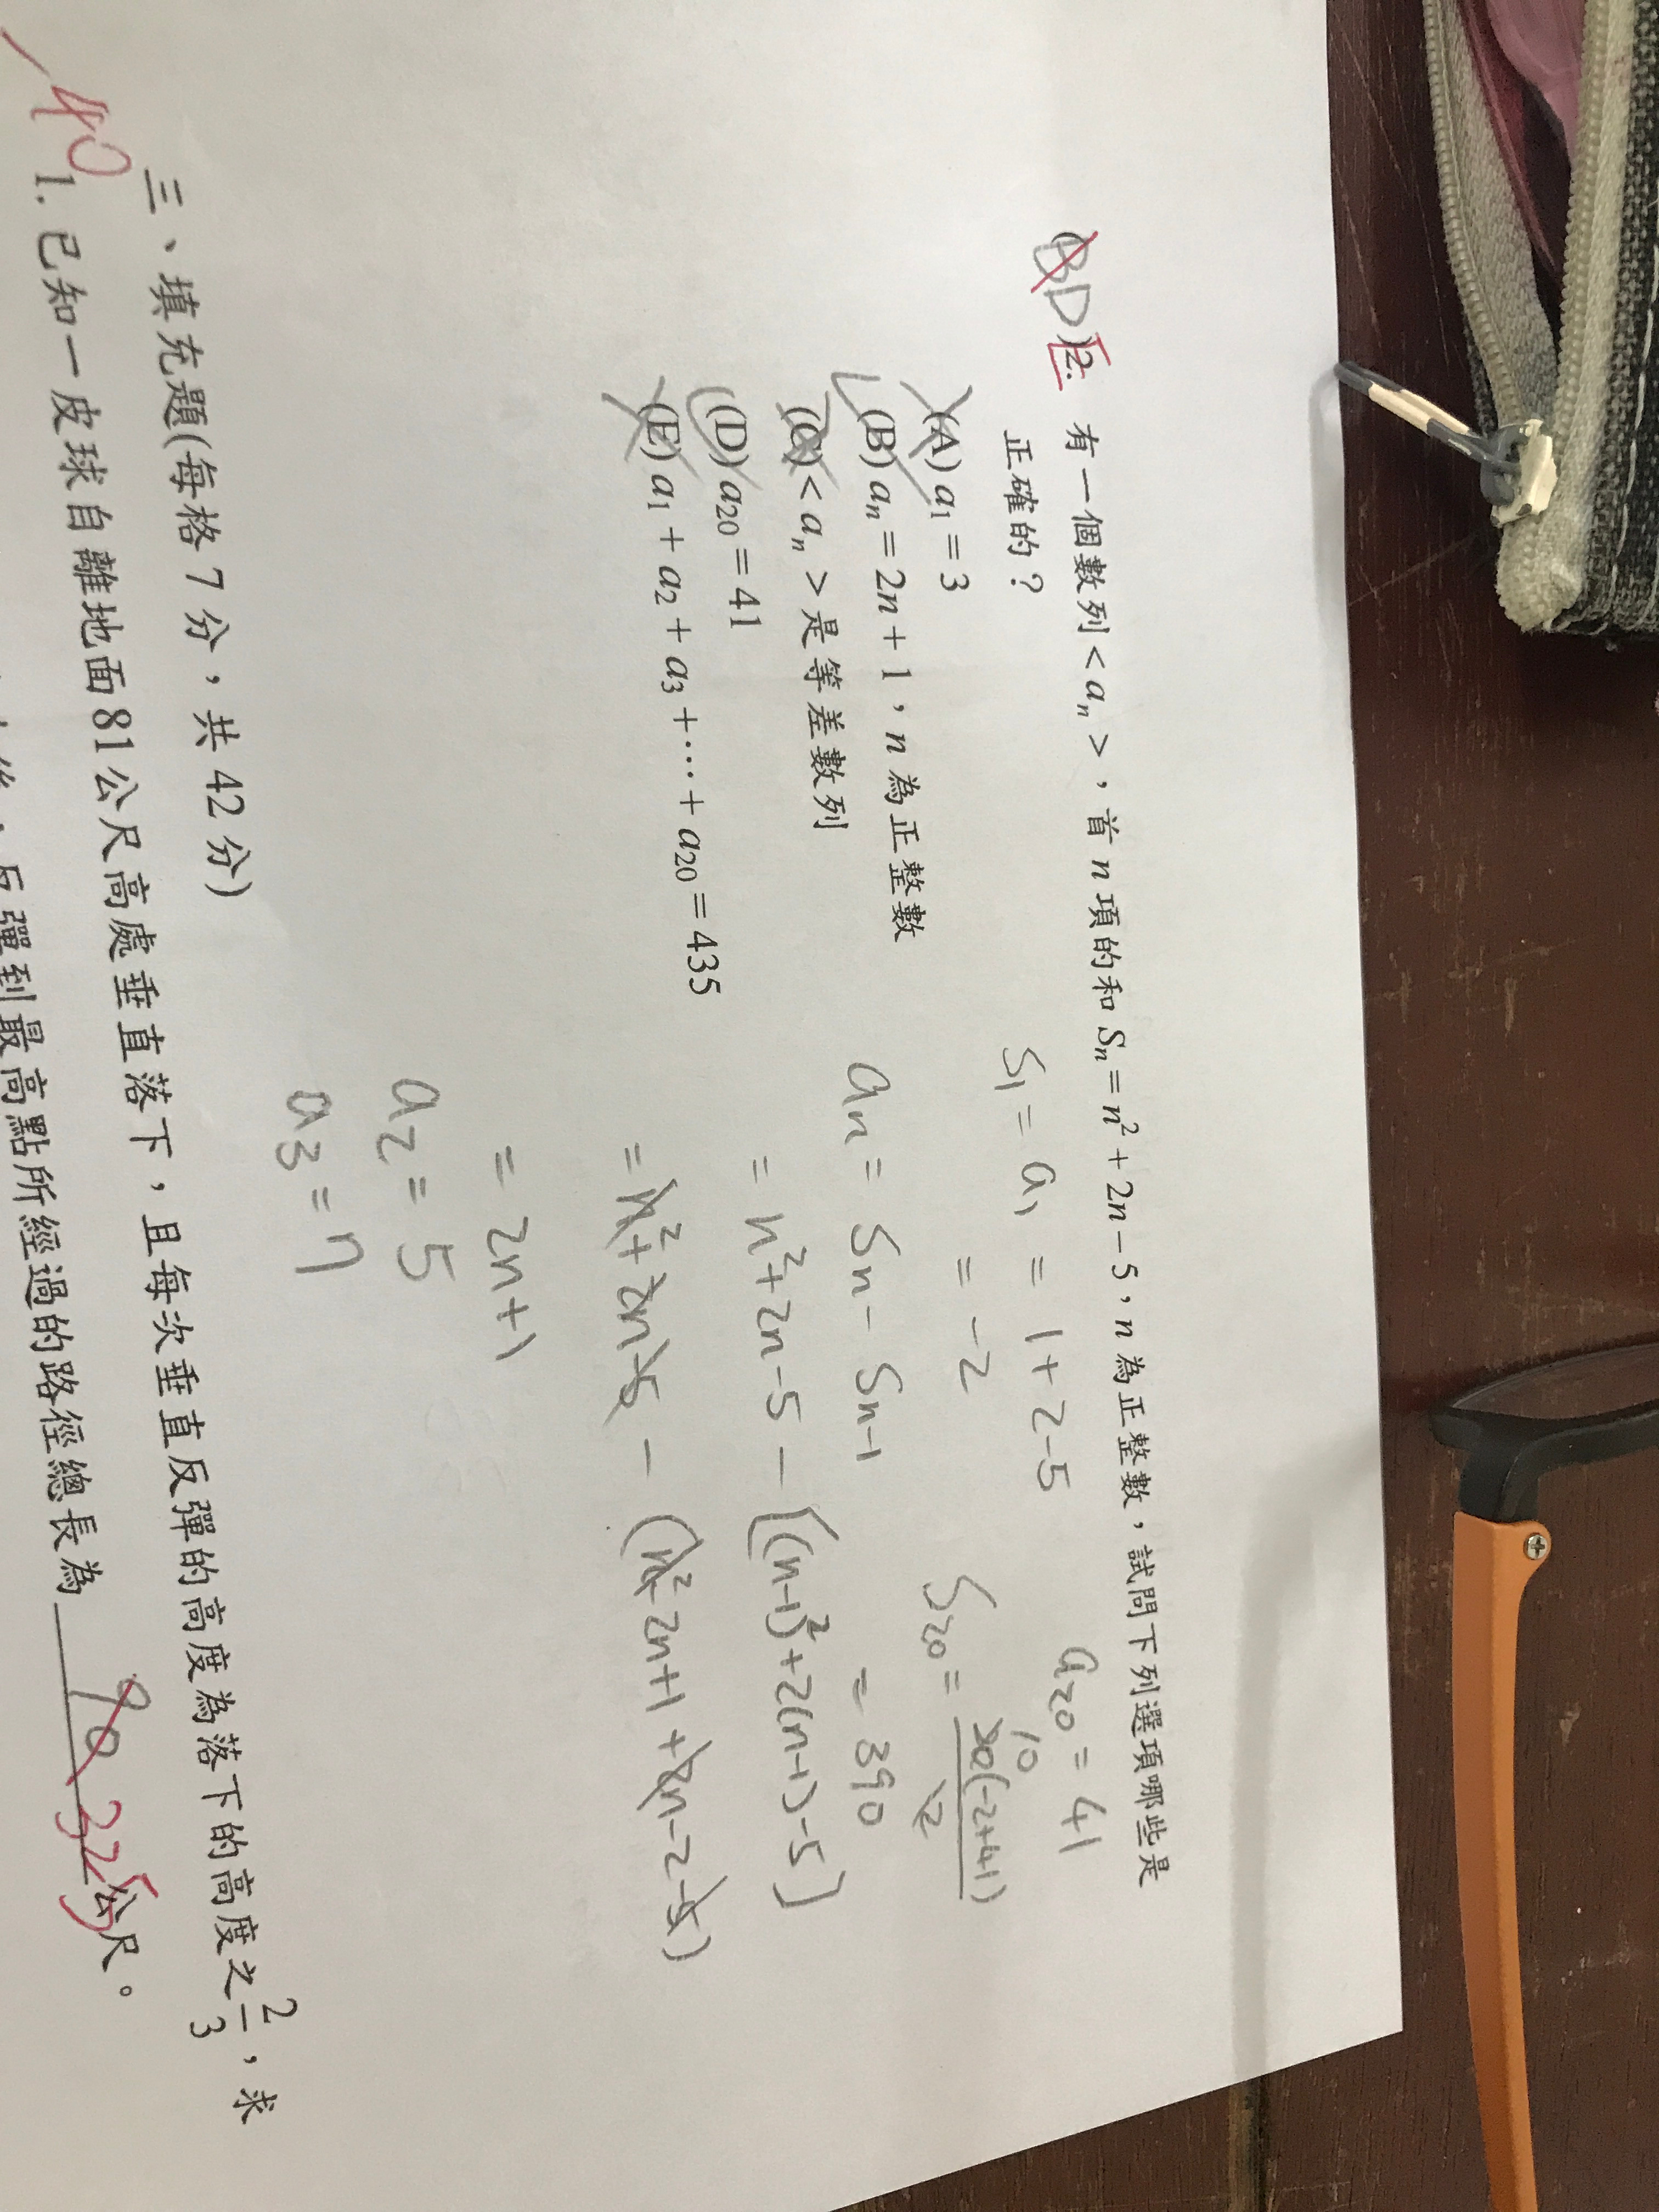 (BD)2. 有一個數列<aₙ>,首 n 項的和 Sₙ=n²+2n-5,n 為正整數,試問下列選項哪些是
正確的?
(A) a₁=3
(B) aₙ=2n+1,n 為正整數
(C) <aₙ> 是等差數列
(D) a₂₀=41
(E) a₁+a₂+a₃+⋯+a₂₀=435
S₁=a₁=1+2-5
=-2
aₙ=Sₙ-Sₙ₋₁
=n²+2n-5-[(n-1)²+2(n-1)-5]
=n²+2n-5-(n²-2n+1+2n-2-5)
=2n+1
a₂=5
a₃=7
a₂₀=41
10
S₂₀=20(-2+41)/2
=390
40
三、填充題(每格 7 分,共 42 分)
1. 已知一皮球自離地面81公尺高處垂直落下,且每次垂直反彈的高度為落下的高度之2/3,求
反彈到最高點所經過的路徑總長為 90 325 公尺。